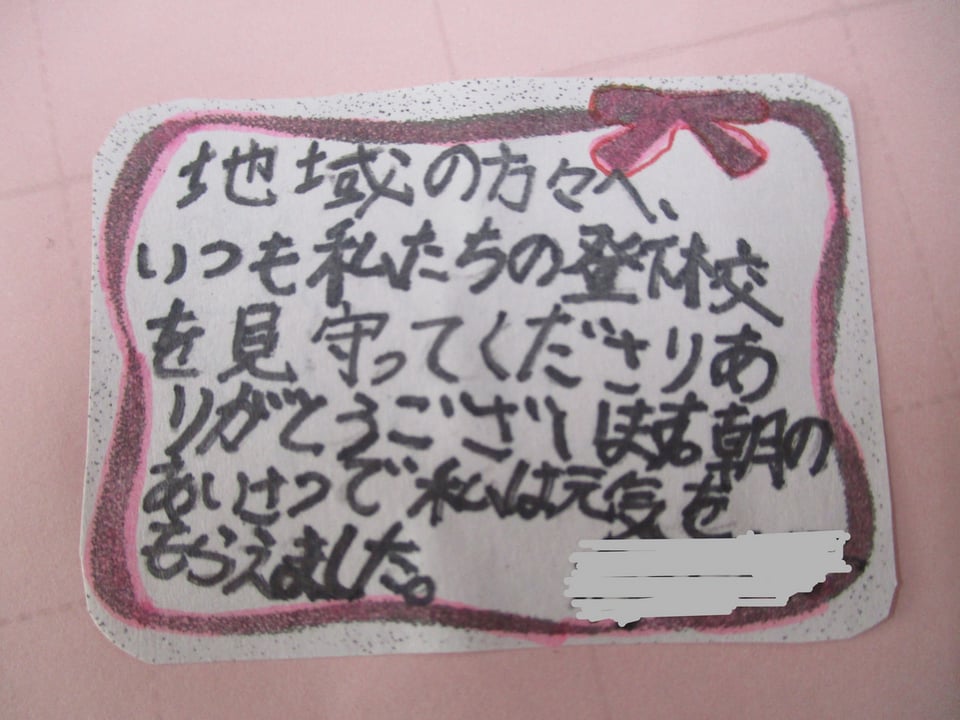 地域の方々へ、
いつも私たちの登下校
を見守ってくださりあ
りがとうございます。朝の
あいさつで私は元気を
もらえました。